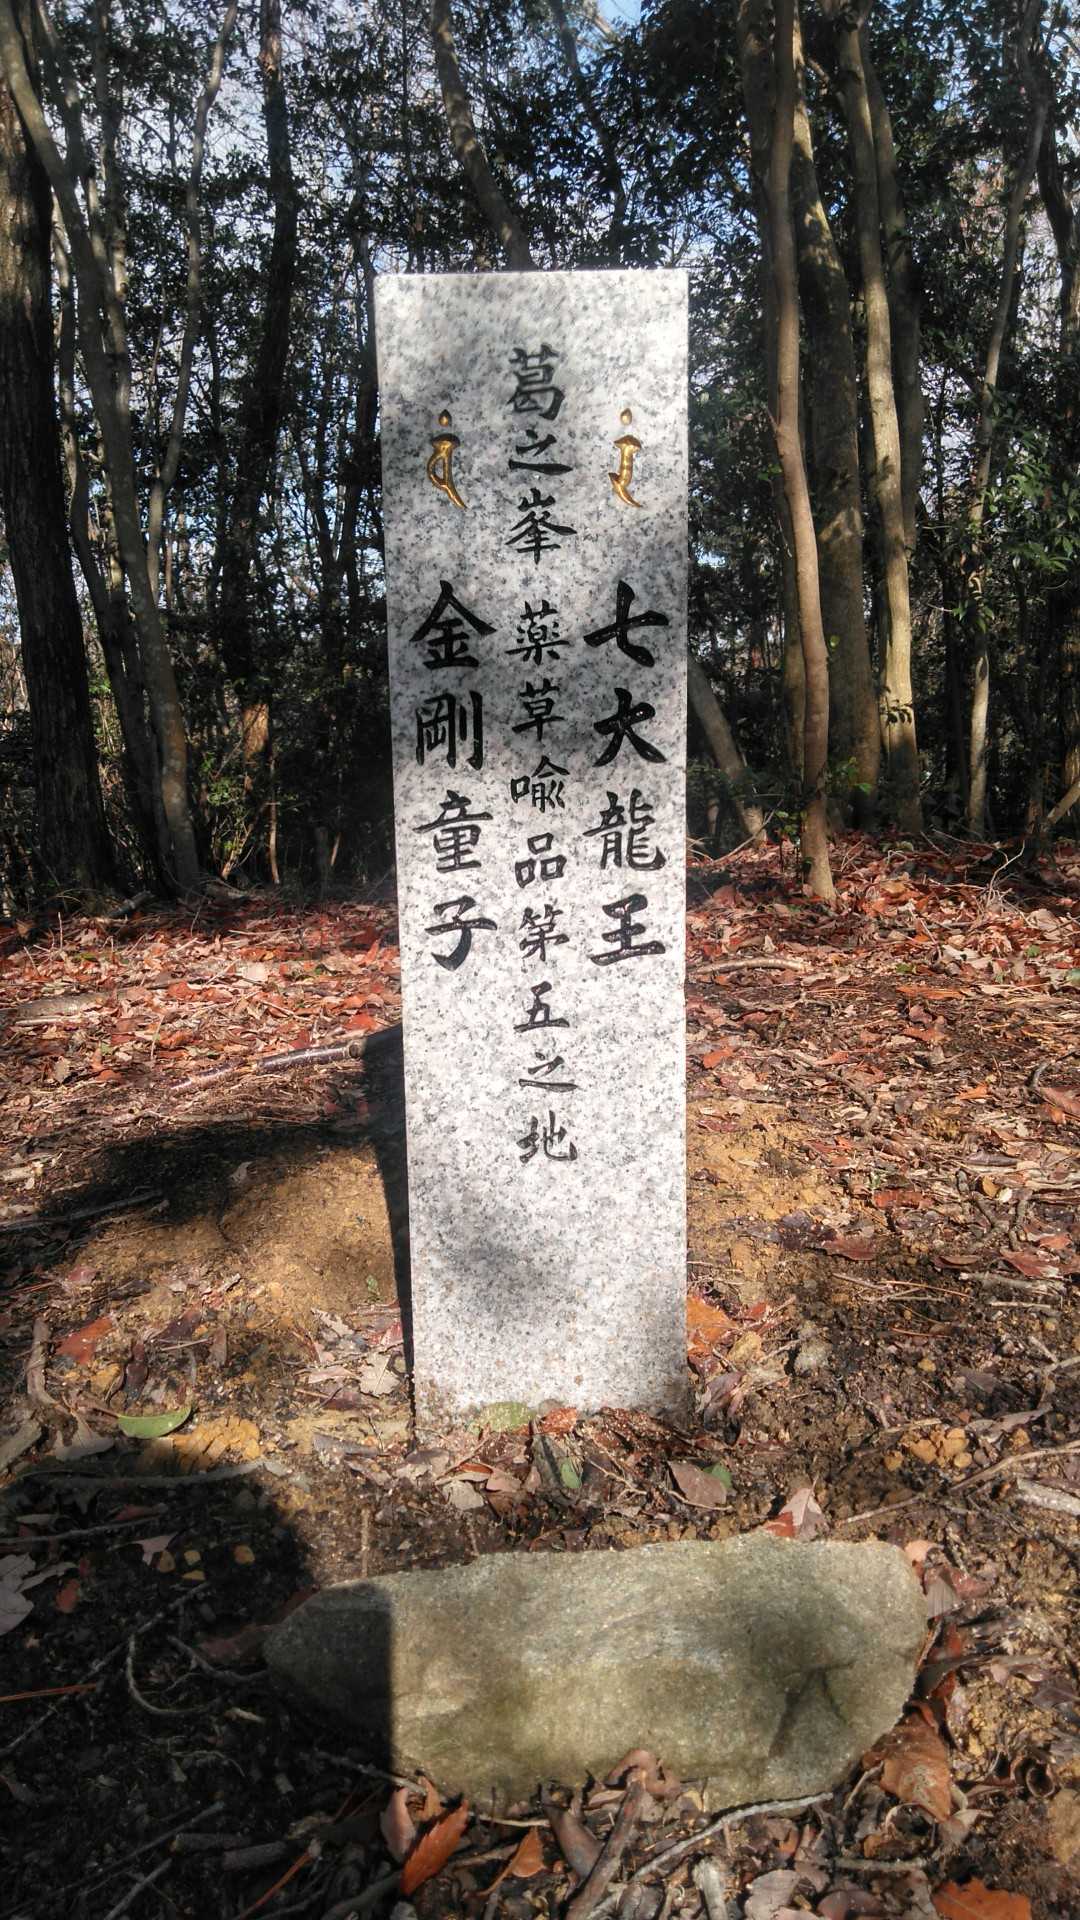 七大龍王
葛之峯 薬草喩品第五之地
金剛童子